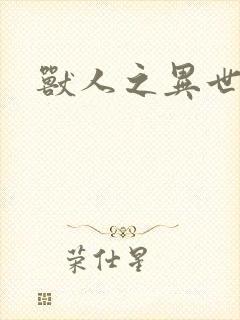 獸人之異世
荣仕星